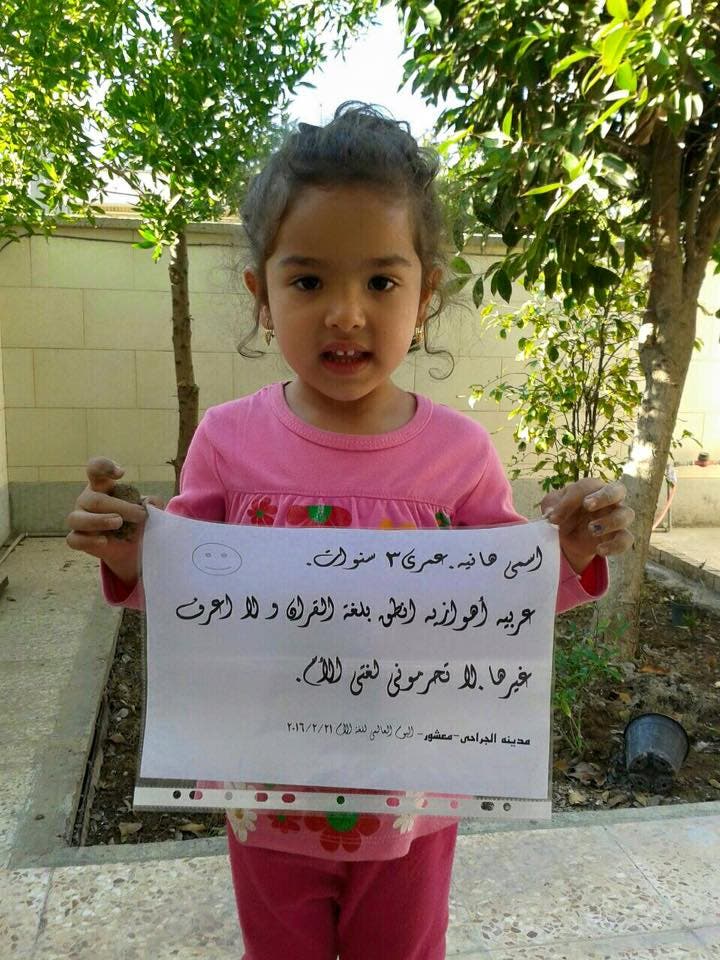 اسمي هانيه. عمري ٣ سنوات.
عربيه أهوازيه انطق بلغة القران و لا اعرف
غيرها. لا تحرموني لغتي الأم.
مدينه الجراحي-معشور- اليوم العالمي للغة الام ٢٠١٦/٢/٢١